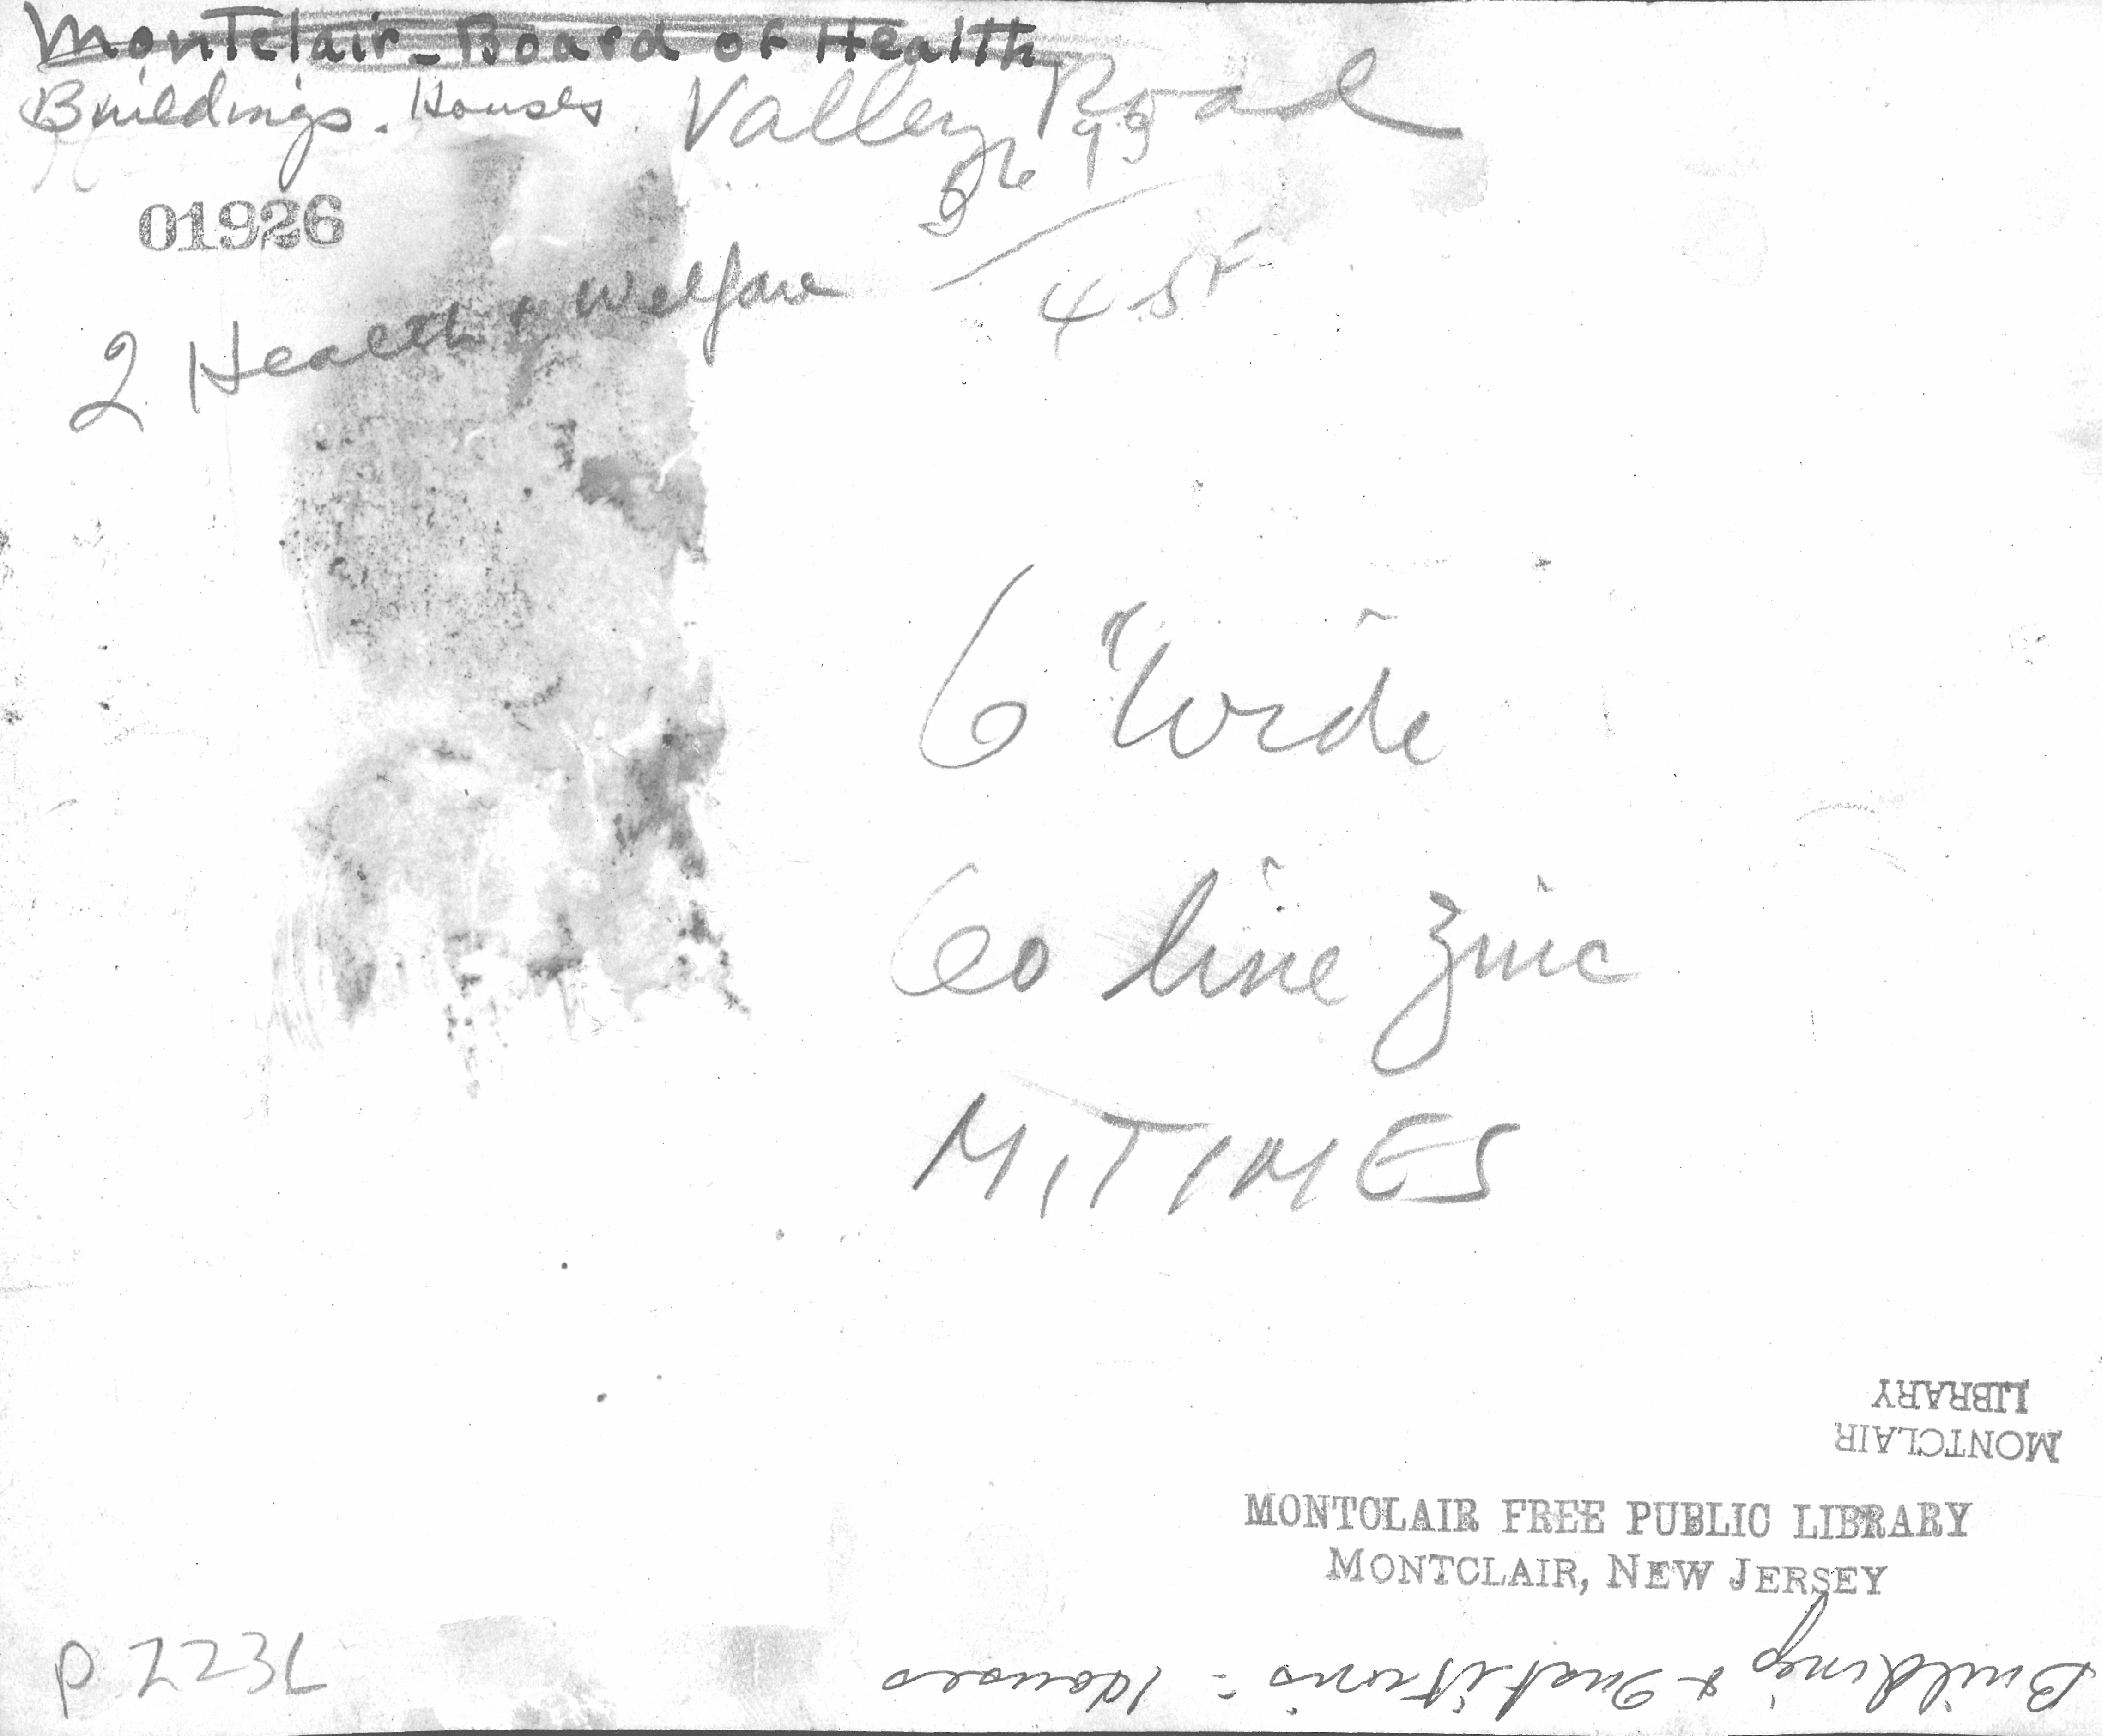 Montclair - Board of Health
Buildings. Houses. Valley Road
01926
2 Health & Welfare
6" Wide
60 line zinc
M, TIMES
LIBRARY
MONTCLAIR
MONTCLAIR FREE PUBLIC LIBRARY
MONTCLAIR, NEW JERSEY
Buildings & Institutions - Houses
p. 223L